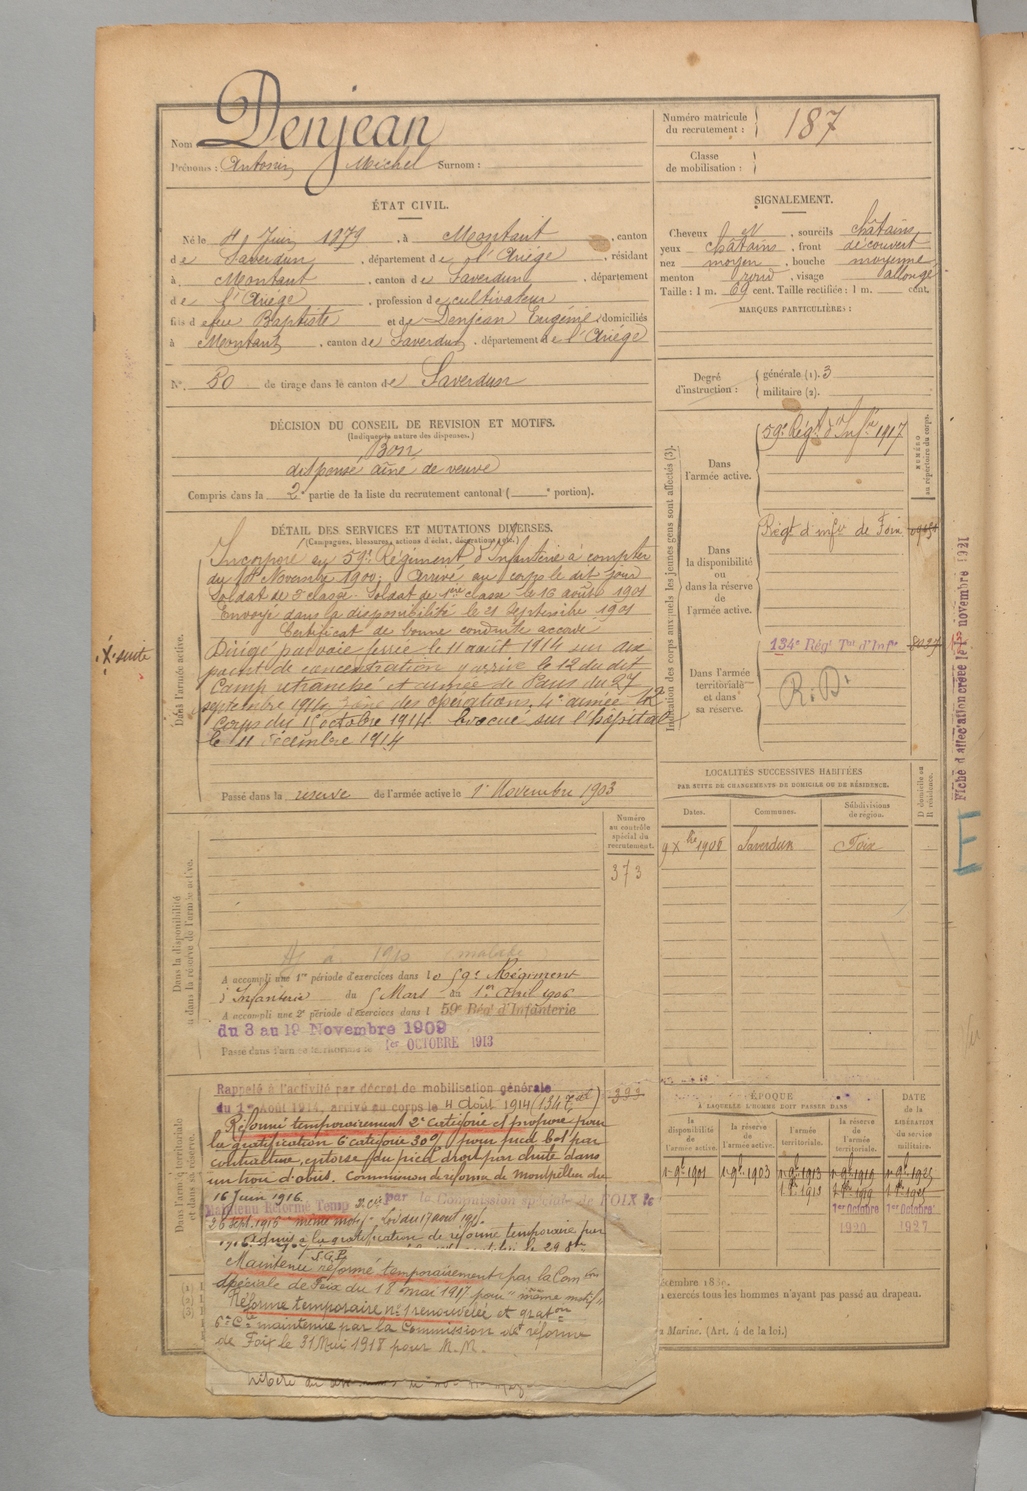 Nom Denjean
Prénoms : Antonin Michel Surnom :
Numéro matricule du recrutement : 187
Classe de mobilisation :
ÉTAT CIVIL.
Né le Juin 1879, à Montaut, canton
de Saverdun, département de l'Ariège, résidant
à Montaut, canton de Saverdun, département
de l'Ariège, profession de cultivateur
fils de feu Baptiste et de Denjean Eugénie, domiciliés
à Montaut, canton de Saverdun, département de l'Ariège
N° 30 de tirage dans le canton de Saverdun
SIGNALEMENT.
Cheveux et, sourcils châtains
yeux châtains, front découvert
nez moyen, bouche moyenne
menton rond, visage allongé
Taille : 1 m. 69 cent. Taille rectifiée : 1 m. cent.
MARQUES PARTICULIÈRES :
Degré d'instruction : générale (1). 3
militaire (2).
DÉCISION DU CONSEIL DE REVISION ET MOTIFS.
(Indiquer la nature des dispenses.)
Bon
dispensé aîné de veuve
Compris dans la 2e partie de la liste du recrutement cantonal ( e portion).
DÉTAIL DES SERVICES ET MUTATIONS DIVERSES.
(Campagnes, blessures, actions d'éclat, décorations, etc.)
Incorporé au 59e Régiment d'Infanterie à compter
du Novembre 1900; Arrivé au corps le dit jour
Soldat de 2e classe. Soldat de 1ère classe le 16 août 1901
Envoyé dans la disponibilité le 21 Septembre 1901
Certificat de bonne conduite accordé
Dirigé par voie ferrée le 11 août 1914 sur
point de concentration y arrivé le 12 du dit
Camp retranché et armée de Paris du 27
septembre 1914 zone des opérations, 4e armée
Corps du 1er octobre 1914. Evacué sur l'hôpital
le 11 décembre 1914
suite
Dans l'armée active.
Passé dans la réserve de l'armée active le 1er Novembre 1903
Indication des corps auxquels les jeunes gens sont affectés (3).
NUMÉRO au répertoire du corps.
Dans l'armée active.
59e Régt d'Infrie 1917
Dans la disponibilité ou dans la réserve de l'armée active.
Régt d'infie de Foix
Dans l'armée territoriale et dans sa réserve.
134e Régt Tal d'Infie
Fiche d'affectation créée le 1er novembre 1921
LOCALITÉS SUCCESSIVES HABITÉES
PAR SUITE DE CHANGEMENTS DE DOMICILE OU DE RÉSIDENCE.
Dates. Communes. Subdivisions de région. D domicile ou R résidence.
9 Xbre 1906 Saverdun Foix
Numéro au contrôle spécial du recrutement.
373
Dans la disponibilité ou dans la réserve de l'armée active.
1910 malade
A accompli une 1re période d'exercices dans le 59e Régiment
d'Infanterie du 5 Mars au 1er Avril 1906
A accompli une 2e période d'exercices dans l 59e Régt d'Infanterie
du 3 au 19 Novembre 1909
Passé dans l'armée territoriale le 1er OCTOBRE 1913
Dans l'armée territoriale et dans sa réserve.
Rappelé à l'activité par décret de mobilisation générale
du 1er Août 1914, arrivé au corps le 4 Août 1914 (134e
Réformé temporairement 2e catégorie et proposé pour
la gratification 6e catégorie 30% pour pied bot par
contracture, entorse du pied droit par chute dans
un trou d'obus. Commission de réforme de Montpellier du
16 Juin 1916
Maintenu Réformé Temp 2e Cie par la Commission spéciale de FOIX le
26 Sept. 1916 même motif. Loi du 17 août 1915.
admis à la gratification de réforme temporaire par
Maintenu réformé temporairement par la Comon
Spéciale de Foix du 18 mai 1917 pour "même motif"
Réforme temporaire n° 1 renouvelée et graton
6e Cie maintenue par la Commission de réforme
de Foix le 31 Mai 1918 pour M.M.
ÉPOQUE
À LAQUELLE L'HOMME DOIT PASSER DANS
DATE de la LIBÉRATION du service militaire.
la disponibilité de l'armée active. la réserve de l'armée active. l'armée territoriale. la réserve de l'armée territoriale.
1903 1913 1919
1er Octobre 1920
1er Octobre 1927
exercés tous les hommes n'ayant pas passé au drapeau.
Marine. (Art. 4 de la loi.)